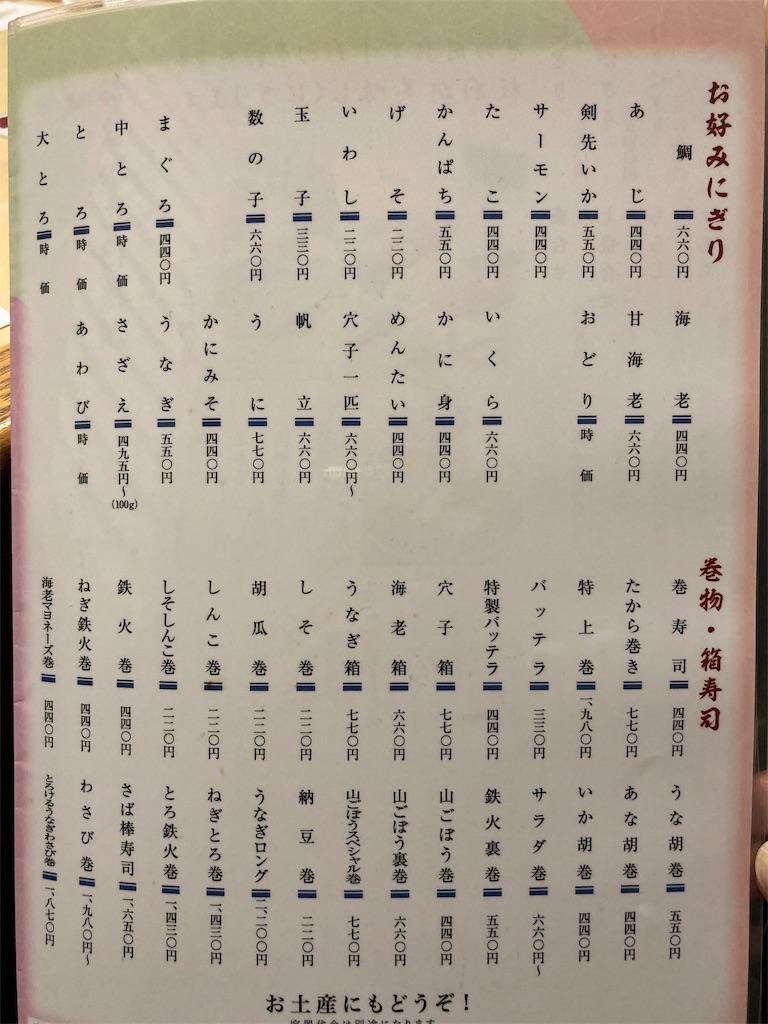 お好みにぎり
鯛 六六〇円
あじ 四四〇円
剣先いか 五五〇円
サーモン 四四〇円
たこ 四四〇円
かんぱち 五五〇円
げそ 二二〇円
いわし 二二〇円
玉子 三三〇円
数の子 六六〇円
まぐろ 四四〇円
中とろ 時価
とろ 時価
大とろ 時価
海老 四四〇円
甘海老 六六〇円
おどり 時価
いくら 六六〇円
かに身 四四〇円
めんたい 四四〇円
穴子一匹 六六〇円～
帆立 六六〇円
うに 七七〇円
かにみそ 四四〇円
うなぎ 五五〇円
さざえ 四九五円～(100g)
あわび 時価
巻物・箱寿司
巻寿司 四四〇円
たから巻き 七七〇円
特上巻 一、九八〇円
バッテラ 三三〇円
特製バッテラ 四四〇円
穴子箱 七七〇円
海老箱 六六〇円
うなぎ箱 七七〇円
しそ巻 二二〇円
胡瓜巻 二二〇円
しんこ巻 二二〇円
しそしんこ巻 二二〇円
鉄火巻 四四〇円
ねぎ鉄火巻 四四〇円
海老マヨネーズ巻 四四〇円
うな胡巻 五五〇円
あな胡巻 四四〇円
いか胡巻 四四〇円
サラダ巻 六六〇円～
鉄火裏巻 五五〇円
山ごぼう巻 四四〇円
山ごぼう裏巻 六六〇円
山ごぼうスペシャル巻 七七〇円
納豆巻 二二〇円
うなぎロング 二、二〇〇円
ねぎとろ巻 一、四三〇円
とろ鉄火巻 一、四三〇円
さば棒寿司 一、六五〇円
わさび巻 一、九八〇円～
とろけるうなぎわさび巻 一、八七〇円
お土産にもどうぞ！